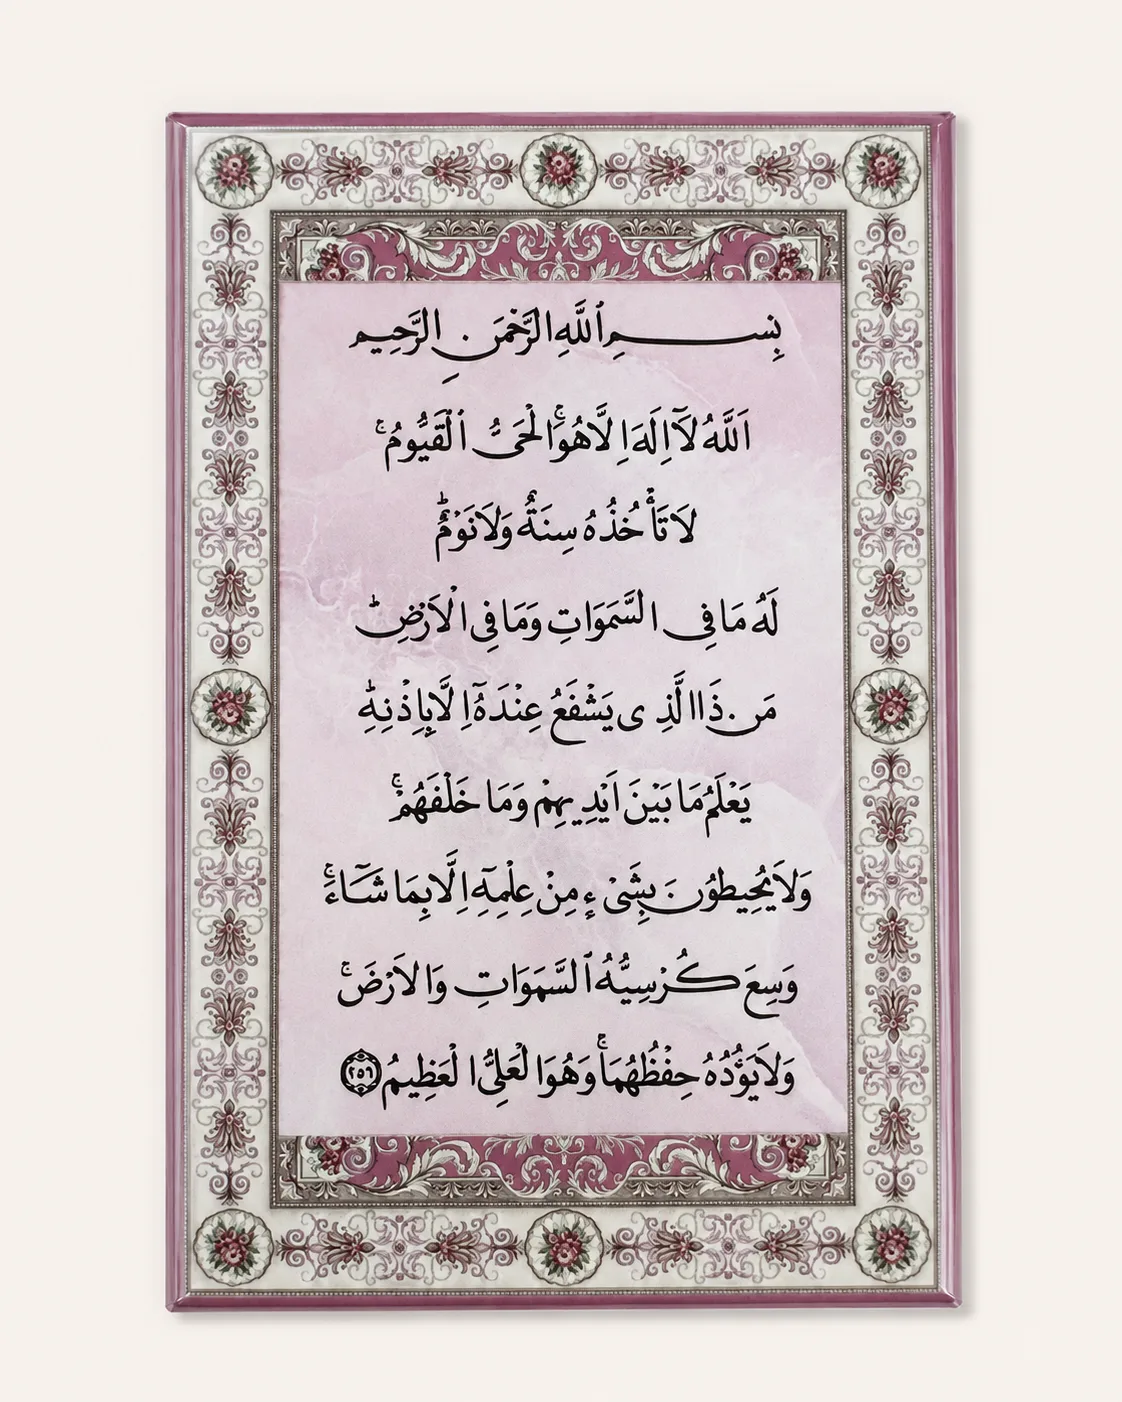 بِسْمِ ٱللَّهِ الرَّحْمَنِ الرَّحِيمِ
اَللَّهُ لَآ اِلَهَ اِلَّا هُوَۚ الْحَىُّ ٱلْقَيُّومُۚ
لَا تَأْخُذُهُ سِنَةٌ وَلَا نَوْمٌؕ
لَهُ مَا فِى السَّمَوَاتِ وَمَا فِى الْاَرْضِؕ
مَن ذَا الَّذِى يَشْفَعُ عِنْدَهُٓ اِلَّا بِاِذْنِهِؕ
يَعْلَمُ مَا بَيْنَ اَيْدِيهِمْ وَمَا خَلْفَهُمْۚ
وَلَا يُحِيطُونَ بِشَىْءٍ مِنْ عِلْمِهِٓ اِلَّا بِمَا شَٓاءَۚ
وَسِعَ كُرْسِيُّهُ ٱلسَّمَوَاتِ وَالْاَرْضَۚ
وَلَا يَؤُدُهُ حِفْظُهُمَاۚ وَهُوَ الْعَلِىُّ الْعَظِيمُ ٢٥٦